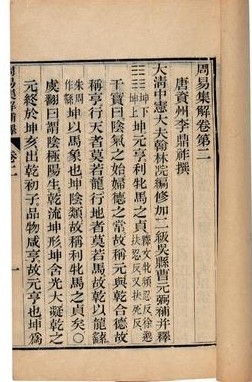 周易集解卷第二
唐資州李鼎祚撰
大清中憲大夫翰林院編修加二級吳縣曹元弼補并釋
䷁坤下坤上坤元亨利牝馬之貞釋文牝頻忍反徐邈扶忍反又扶死反
干寶曰陰氣之始婦德之常故稱元與乾合德故
稱亨行天者莫若龍行地者莫若馬故乾以龍繇
朱周作繇坤以馬象也坤陰類故稱利牝馬之貞矣〇
虞翻曰謂陰極陽生乾流坤形坤含光大凝乾之
元終於坤亥出乾初子品物咸亨故元亨也坤爲
周易集解補釋 卷二 一